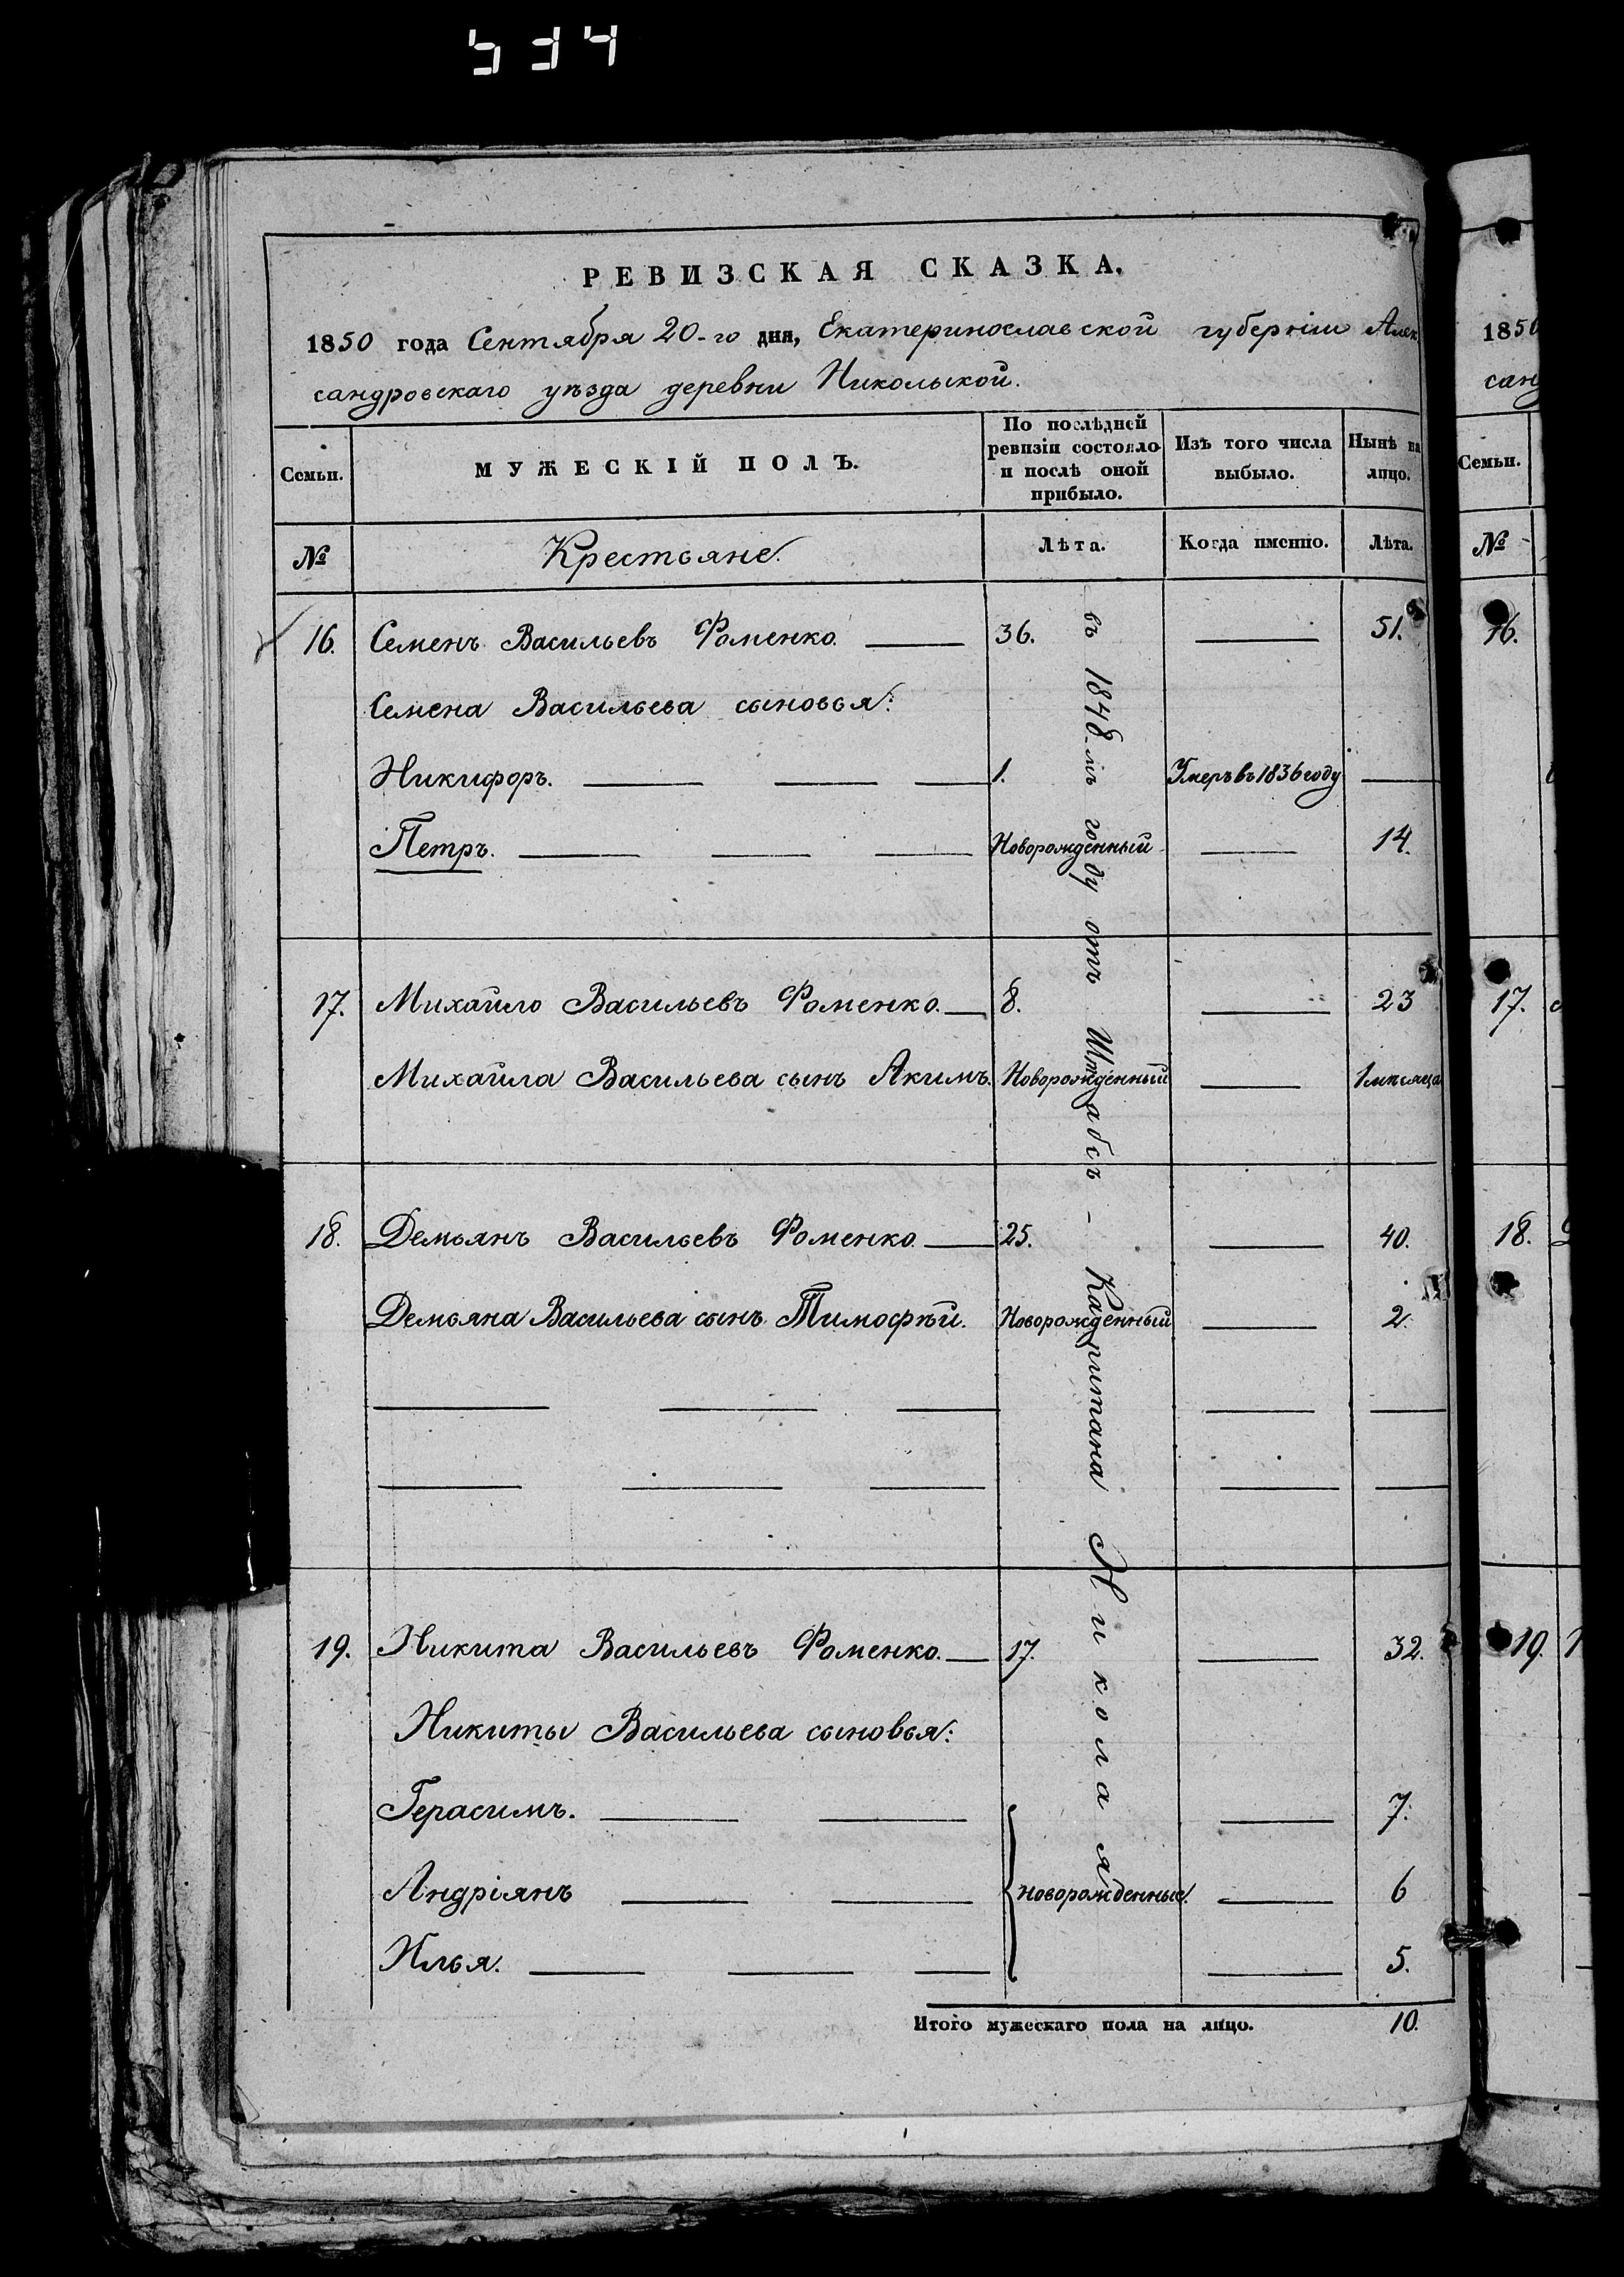 534
РЕВИЗСКАЯ СКАЗКА.
1850 года Сентября 20-го дня, Екатеринославской губернiи Алек
сандровскаго уѣзда деревни Никольской.
Семьи.
МУЖЕСКІЙ ПОЛЪ.
По послѣдней ревизіи состояло и послѣ оной прибыло.
Изъ того числа выбыло.
Нынѣ на лицо.
№ Крестьяне. Лѣта. Когда именно. Лѣта.
16. Семенъ Васильевъ Фоменко. 36. 51.
Семена Васильева сыновья:
Никифоръ. 1. Умеръ въ 1836 году
Петръ. Новорожденный 14.
17. Михайло Васильевъ Фоменко. 8. 23
Михайла Васильева сынъ Акимъ. Новорожденный 1 мѣсяца
18. Демьянъ Васильевъ Фоменко 25. 40.
Демьяна Васильева сынъ Тимофѣй. Новорожденный 2.
19. Никита Васильевъ Фоменко. 17. 32.
Никиты Васильева сыновья:
Герасимъ. 7.
Андріянъ новорожденные. 6
Илья. 5.
Итого мужескаго пола на лицо. 10.
въ 1848-мъ году отъ Штабсъ-Капитана Николая
1850
санд
Семьи.
№
16.
17.
18.
19.